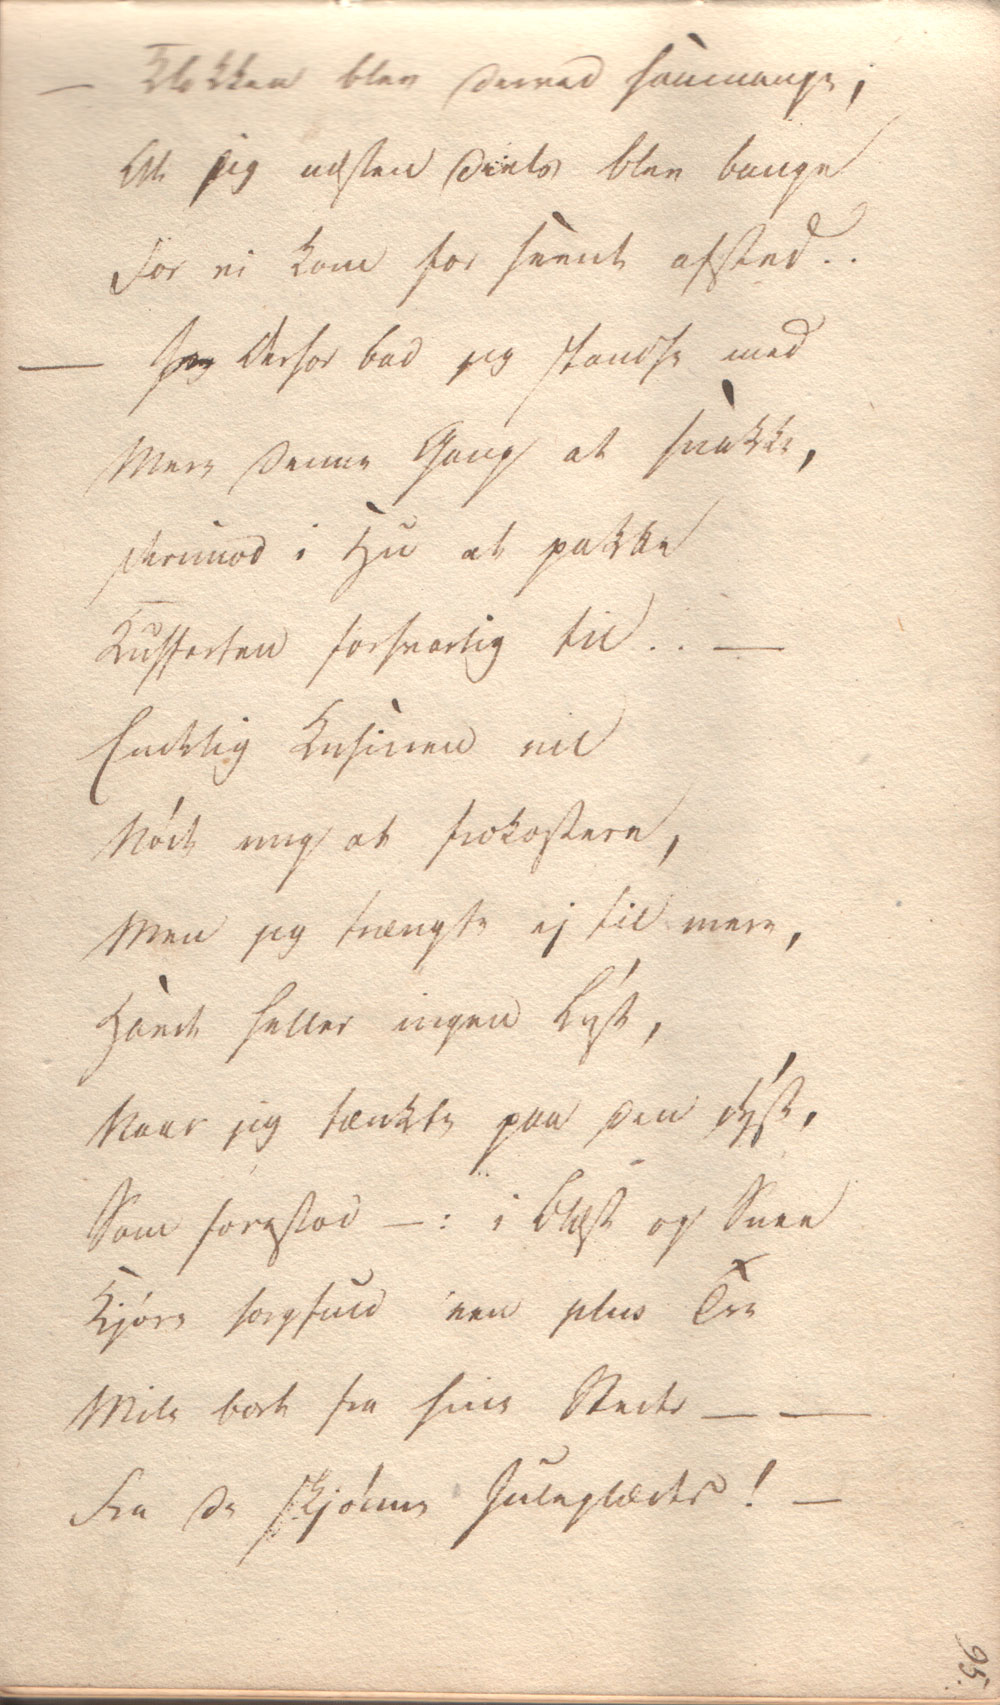 — Klokken blev derved saamange,
At jeg næsten deels blev bange
For ei kom for seent afsted..
— Derfor bad jeg standse med
Mere denne Gang at snakke,
derimod i Hu at pakke
Kufferten forsvarlig til.. —
Endelig Kusinen vil
Nödt mig at frokostere,
Men jeg trængte ej til mere,
Havde heller ingen Lyst,
Naar jeg tænkte paa den dyst,
Som forestod —: i Blæst og Snee
Kjöre sorgfuld een plus Tre
Mile bort fra sine Stæder — —
Fra de skjönne Juleglæder! —
95.